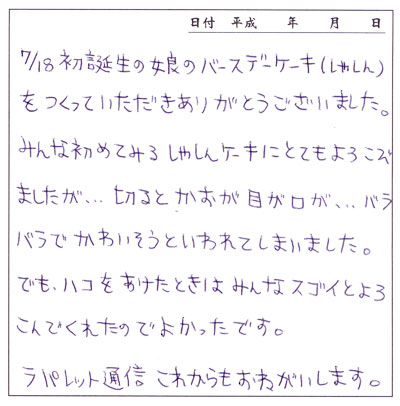 日付 平成 年 月 日
7/18 初誕生の娘のバースデーケーキ(しゃしん)
をつくっていただきありがとうございました。
みんな初めてみるしゃしんケーキにとてもよろこび
ましたが、… 切るとかおが目が口が、… バラ
バラでかわいそうといわれてしまいました。
でも、ハコをあけたときはみんなスゴイとよろ
こんでくれたのでよかったです。
ラパレット通信 これからもおねがいします。